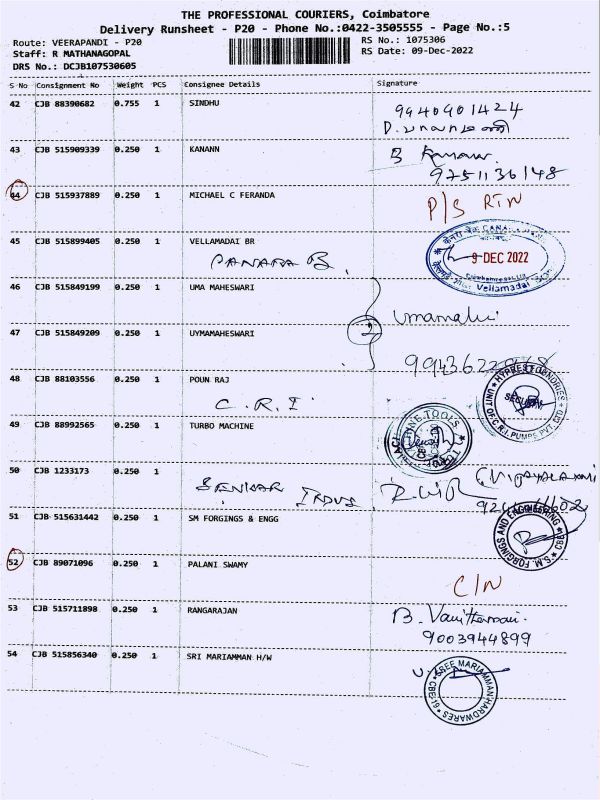 THE PROFESSIONAL COURIERS, Coimbatore
Delivery Runsheet - P20 - Phone No.:0422-3505555 - Page No.:5
Route: VEERAPANDI - P20
RS No.: 1075306
Staff: R MATHANAGOPAL
RS Date: 09-Dec-2022
DRS No.: DCJB107530605
S No Consignment No Weight PCS Consignee Details Signature
42 CJB 88390682 0.755 1 SINDHU 9940901424
43 CJB 515909339 0.250 1 KANANN B Kanann.
9751136148
44 CJB 515937889 0.250 1 MICHAEL C FERANDA P/S RTN
45 CJB 515899405 0.250 1 VELLAMADAI BR
9 DEC 2022
Vellamadai
46 CJB 515849199 0.250 1 UMA MAHESWARI
2
47 CJB 515849209 0.250 1 UYMAMAHESWARI
48 CJB 88103556 0.250 1 POUN RAJ
C.R.I
SECURITY
UNIT OF C.R.I. PUMPS PVT. LTD
49 CJB 88992565 0.250 1 TURBO MACHINE
50 CJB 1233173 0.250 1
51 CJB 515631442 0.250 1 SM FORGINGS & ENGG
S.M. FORGINGS AND ENGINEERING CBE
52 CJB 89071096 0.250 1 PALANI SWAMY C/N
53 CJB 515711898 0.250 1 RANGARAJAN
9003944899
54 CJB 515856340 0.250 1 SRI MARIAMMAN H/W
SREE MARIAMMAN HARDWARES CBE-19